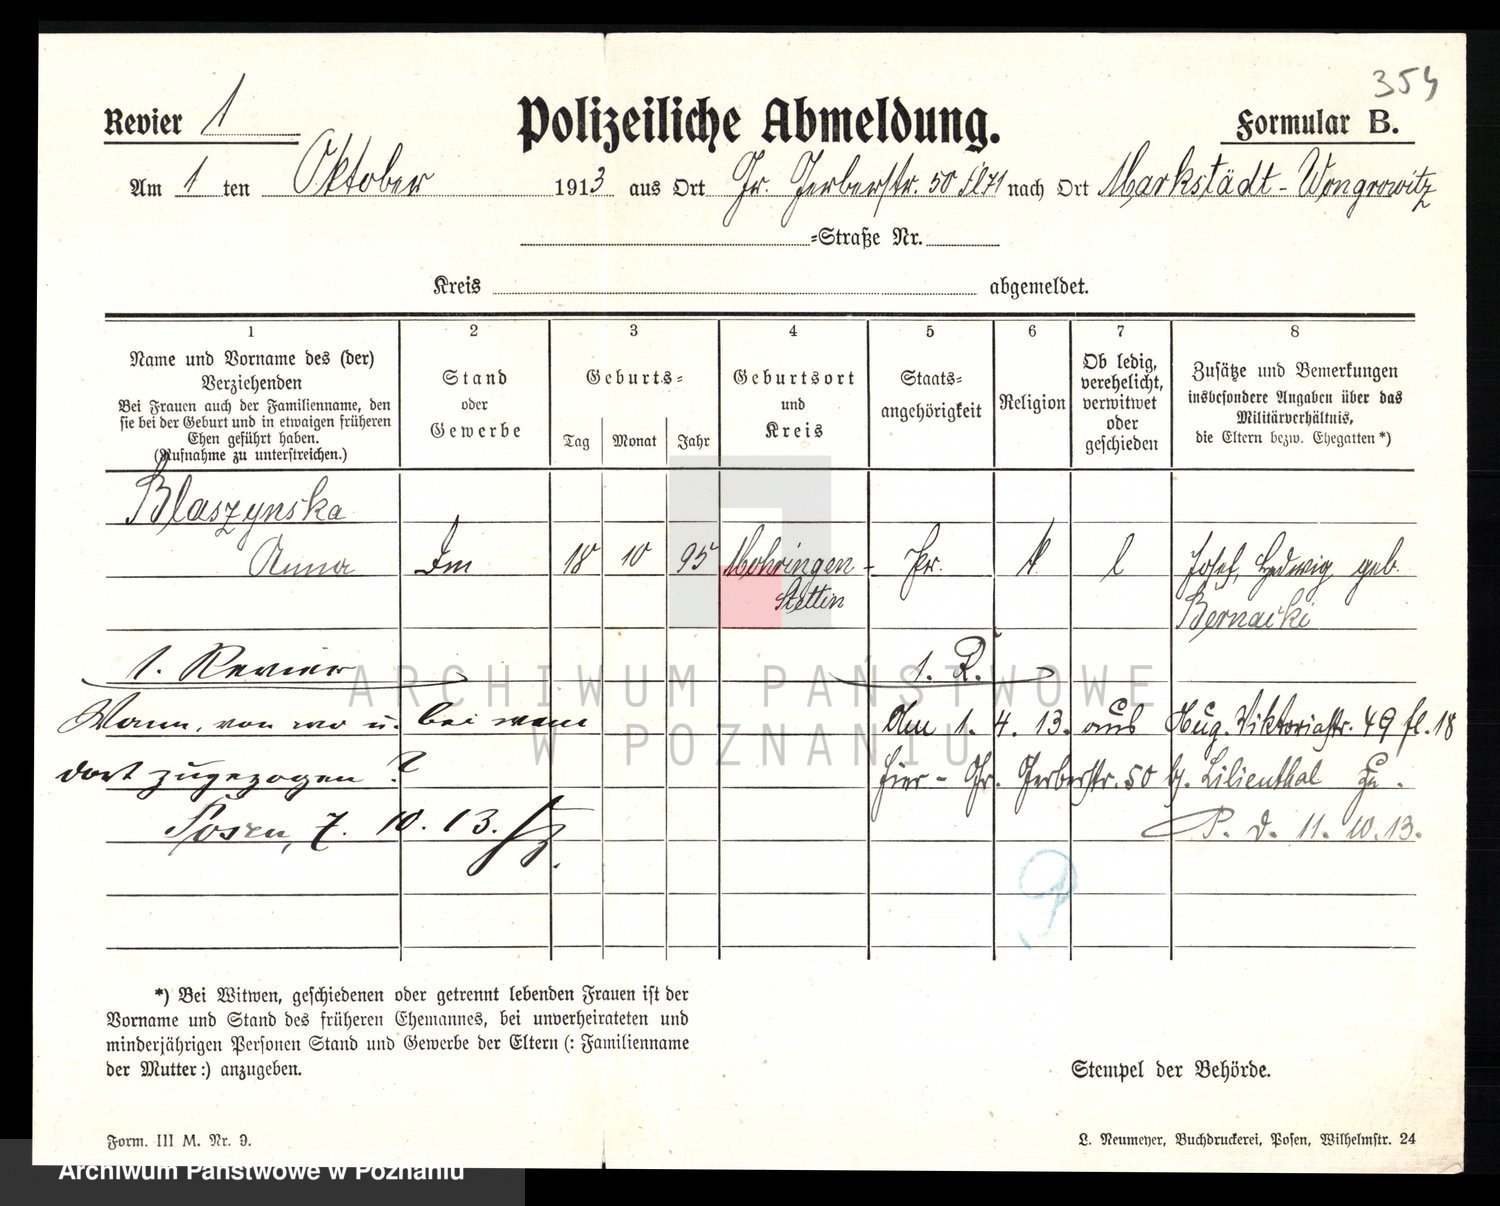 354
Revier 1
Polizeiliche Abmeldung.
Formular B.
Am 1 ten Oktober 1913 aus Ort Gr. Gerberstr. 50 fl 71 nach Ort Markstädt - Wongrowitz
=Straße Nr.
Kreis abgemeldet.
1 2 3 4 5 6 7 8
Name und Vorname des (der) Verziehenden
Bei Frauen auch der Familienname, den sie bei der Geburt und in etwaigen früheren Ehen geführt haben.
(Rufnahme zu unterstreichen.)
Stand oder Gewerbe
Geburts=
Tag Monat Jahr
Geburtsort und Kreis
Staats=angehörigkeit
Religion
Ob ledig, verehelicht, verwitwet oder geschieden
Zusätze und Bemerkungen
insbesondere Angaben über das Militärverhältnis,
die Eltern bezw. Ehegatten*)
Blaszynska
Anna 18 10 95 Mohringen - Pr. K l Josef, Hedwig geb.
Stettin Bernacki
1. Revier 1. R.
Wann, von wo u. bei wem Am 1. 4. 13. aus Aug. Viktoriastr. 49 fl. 18
dort zugezogen? hier - Gr. Gerberstr. 50 b. Lilienthal zu.
Posen, 7. 10. 13. P. d. 11. 10. 13.
ARCHIWUM PAŃSTWOWE
W POZNANIU
*) Bei Witwen, geschiedenen oder getrennt lebenden Frauen ist der
Vorname und Stand des früheren Ehemannes, bei unverheirateten und
minderjährigen Personen Stand und Gewerbe der Eltern (: Familienname
der Mutter:) anzugeben.
Stempel der Behörde.
Form. III M. Nr. 9.
L. Neumeyer, Buchdruckerei, Posen, Wilhelmstr. 24
Archiwum Państwowe w Poznaniu